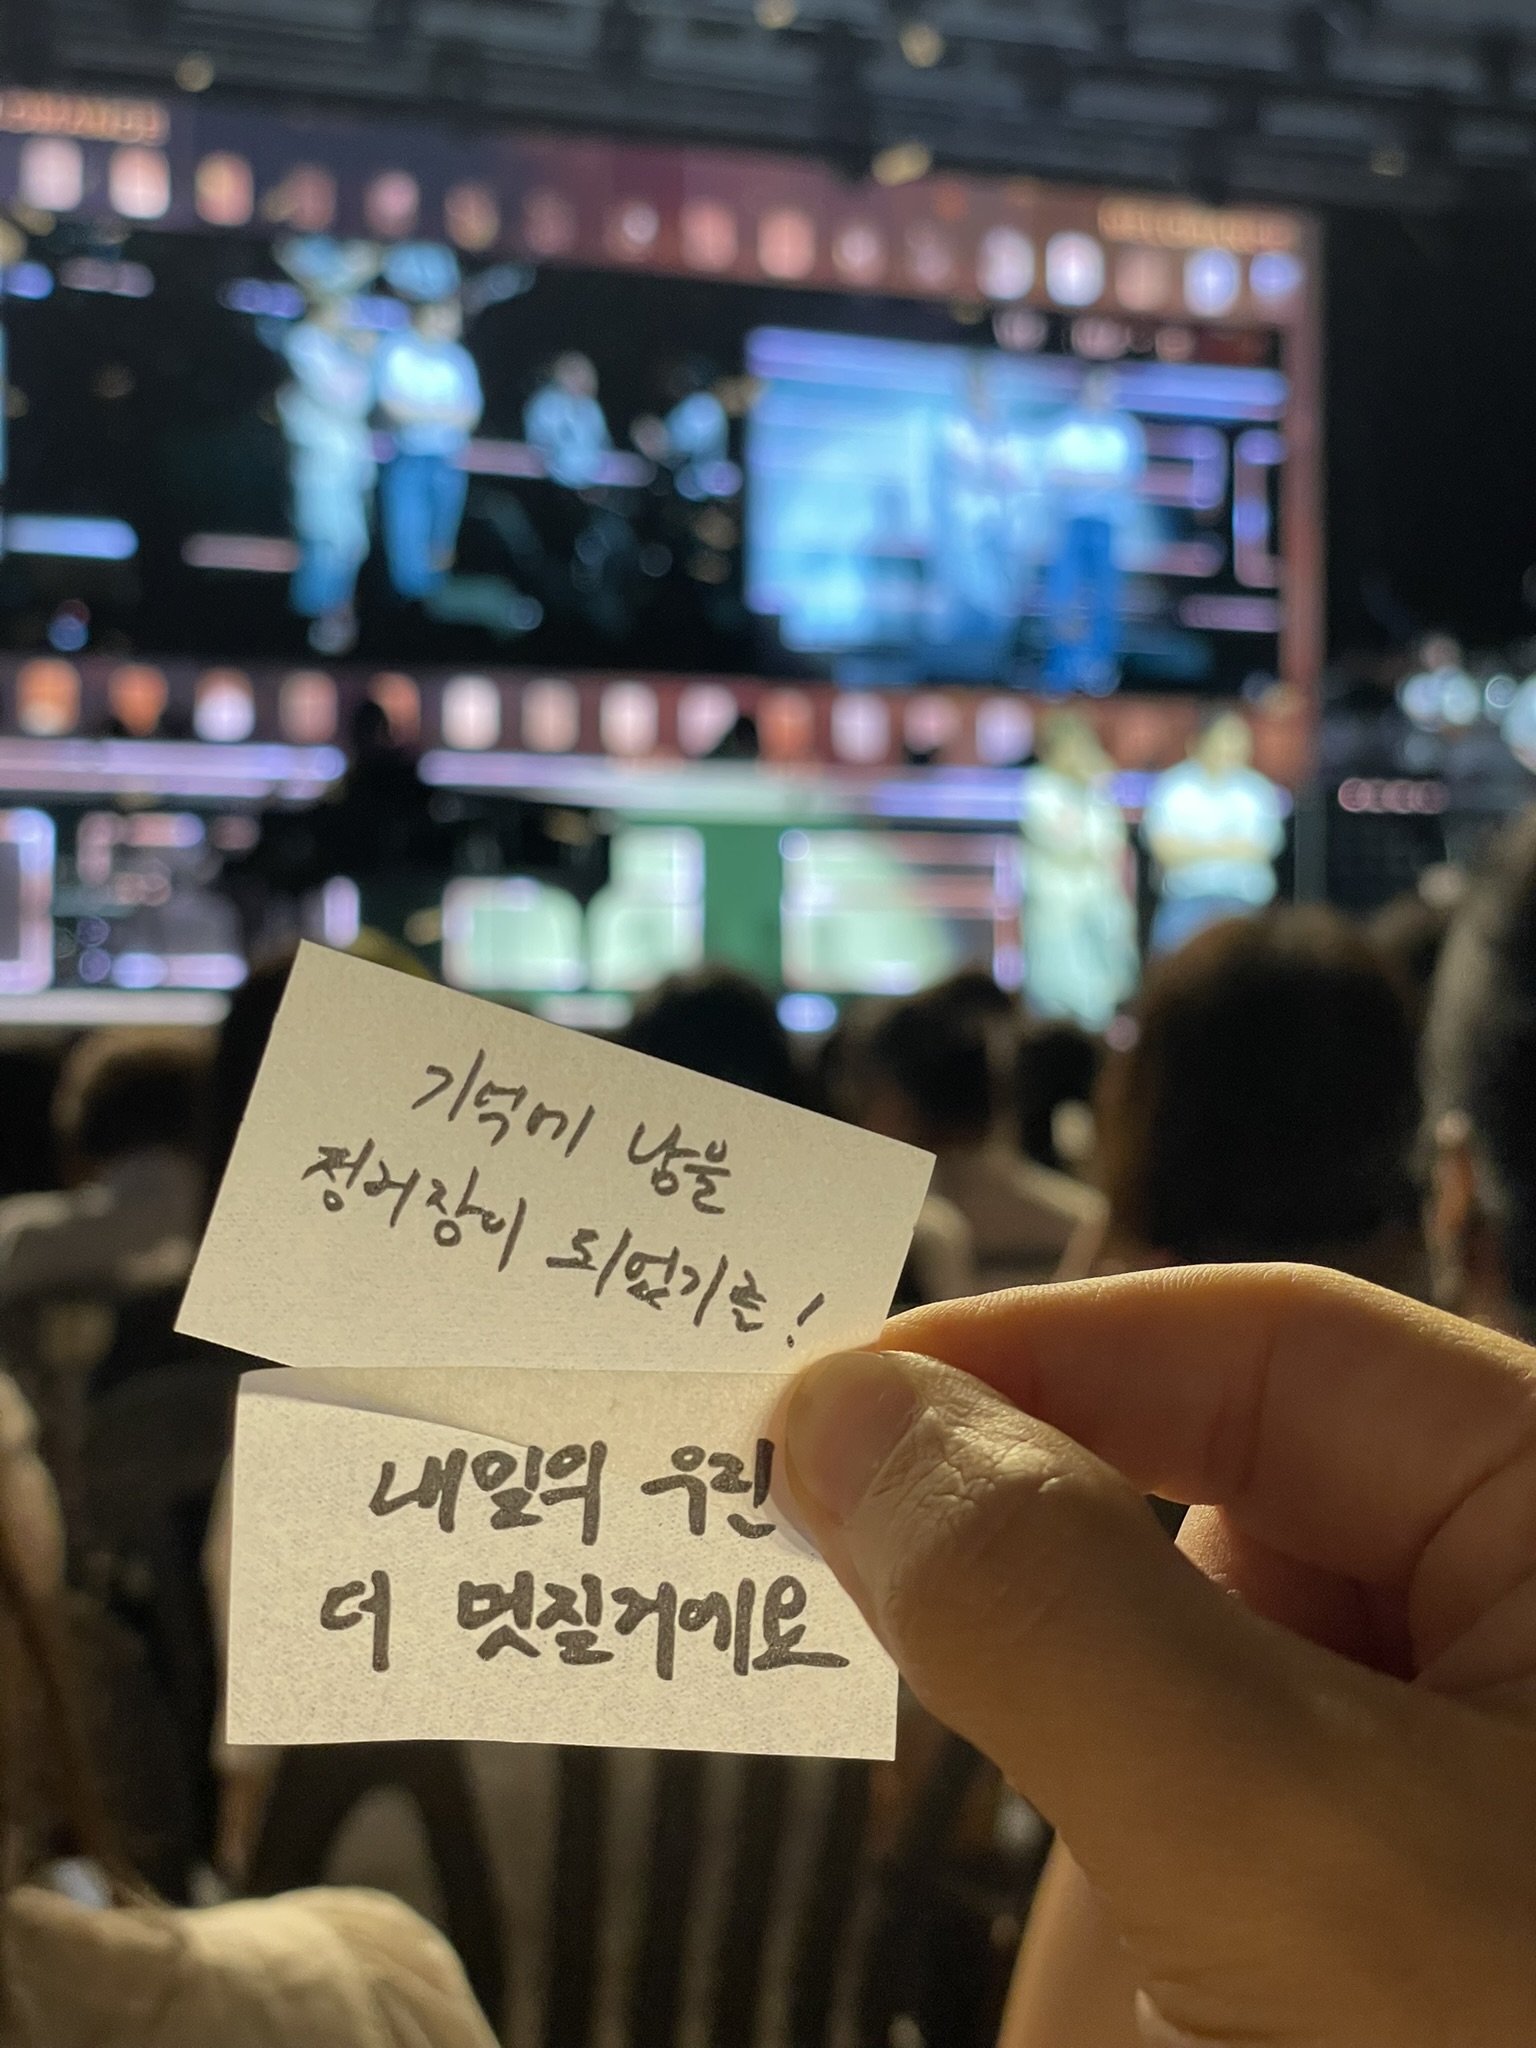 기억에 남을
정거장이 되었기를!
내일의 우린
더 멋질거에요